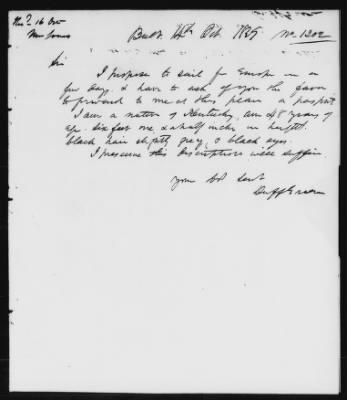 16 Oct
Balt 14th Oct 1839 No. 1202
Sir
I propose to sail for Europe in a
few days, & have to ask of you the favor
to forward to me at this place a passport
I am a native of Kentucky, am 48 years of
age six feet one & a half inches in height.
black hair slightly grey, & black eyes.
I presume this description will suffice.
your obt servt
Duff Green